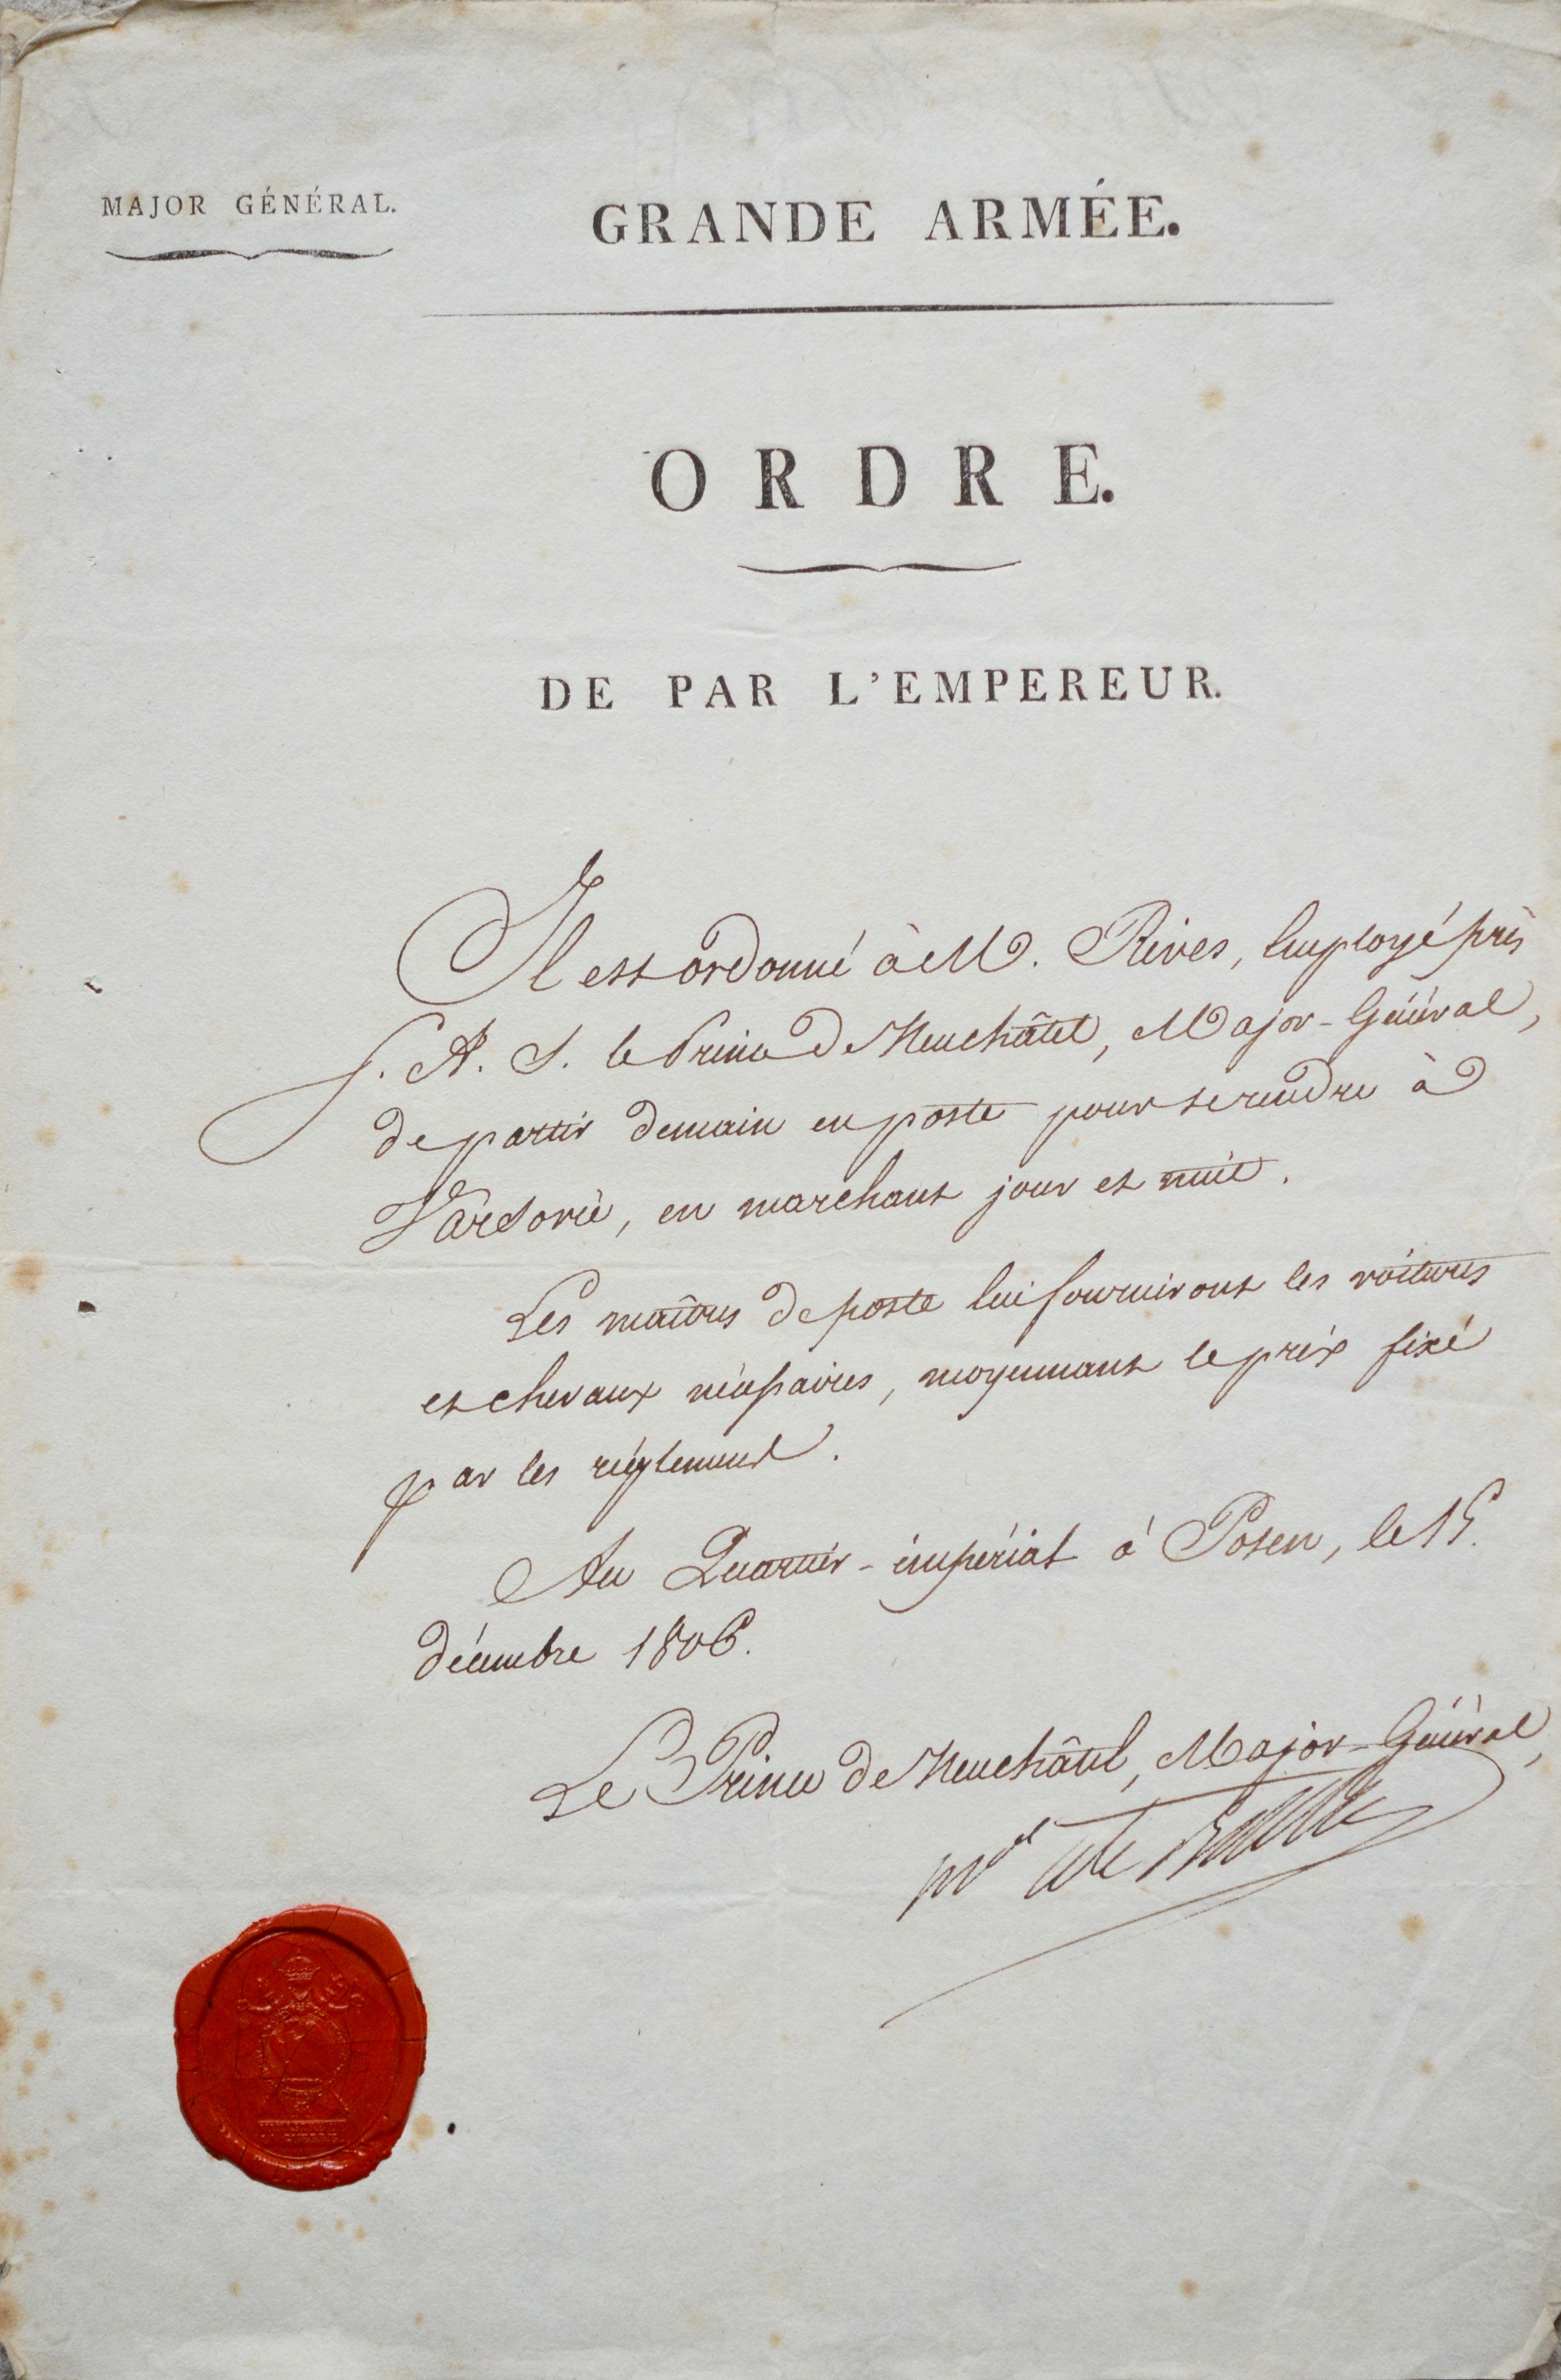 MAJOR GÉNÉRAL.
GRANDE ARMÉE.
ORDRE.
DE PAR L'EMPEREUR.
Il est ordonné à M. Rives, Employé près
S. A. S. le Prince de Neuchâtel, Major-Général,
de partir demain en poste pour se rendre à
Varsovie, en marchant jour et nuit.
Les maîtres de poste lui fourniront les voitures
et chevaux nécessaires, moyennant le prix fixé
par les réglemens.
Au Quartier-impérial à Posen, le 15.
décembre 1806.
Le Prince de Neuchâtel, Major-Général,
M.al Alex Berthier